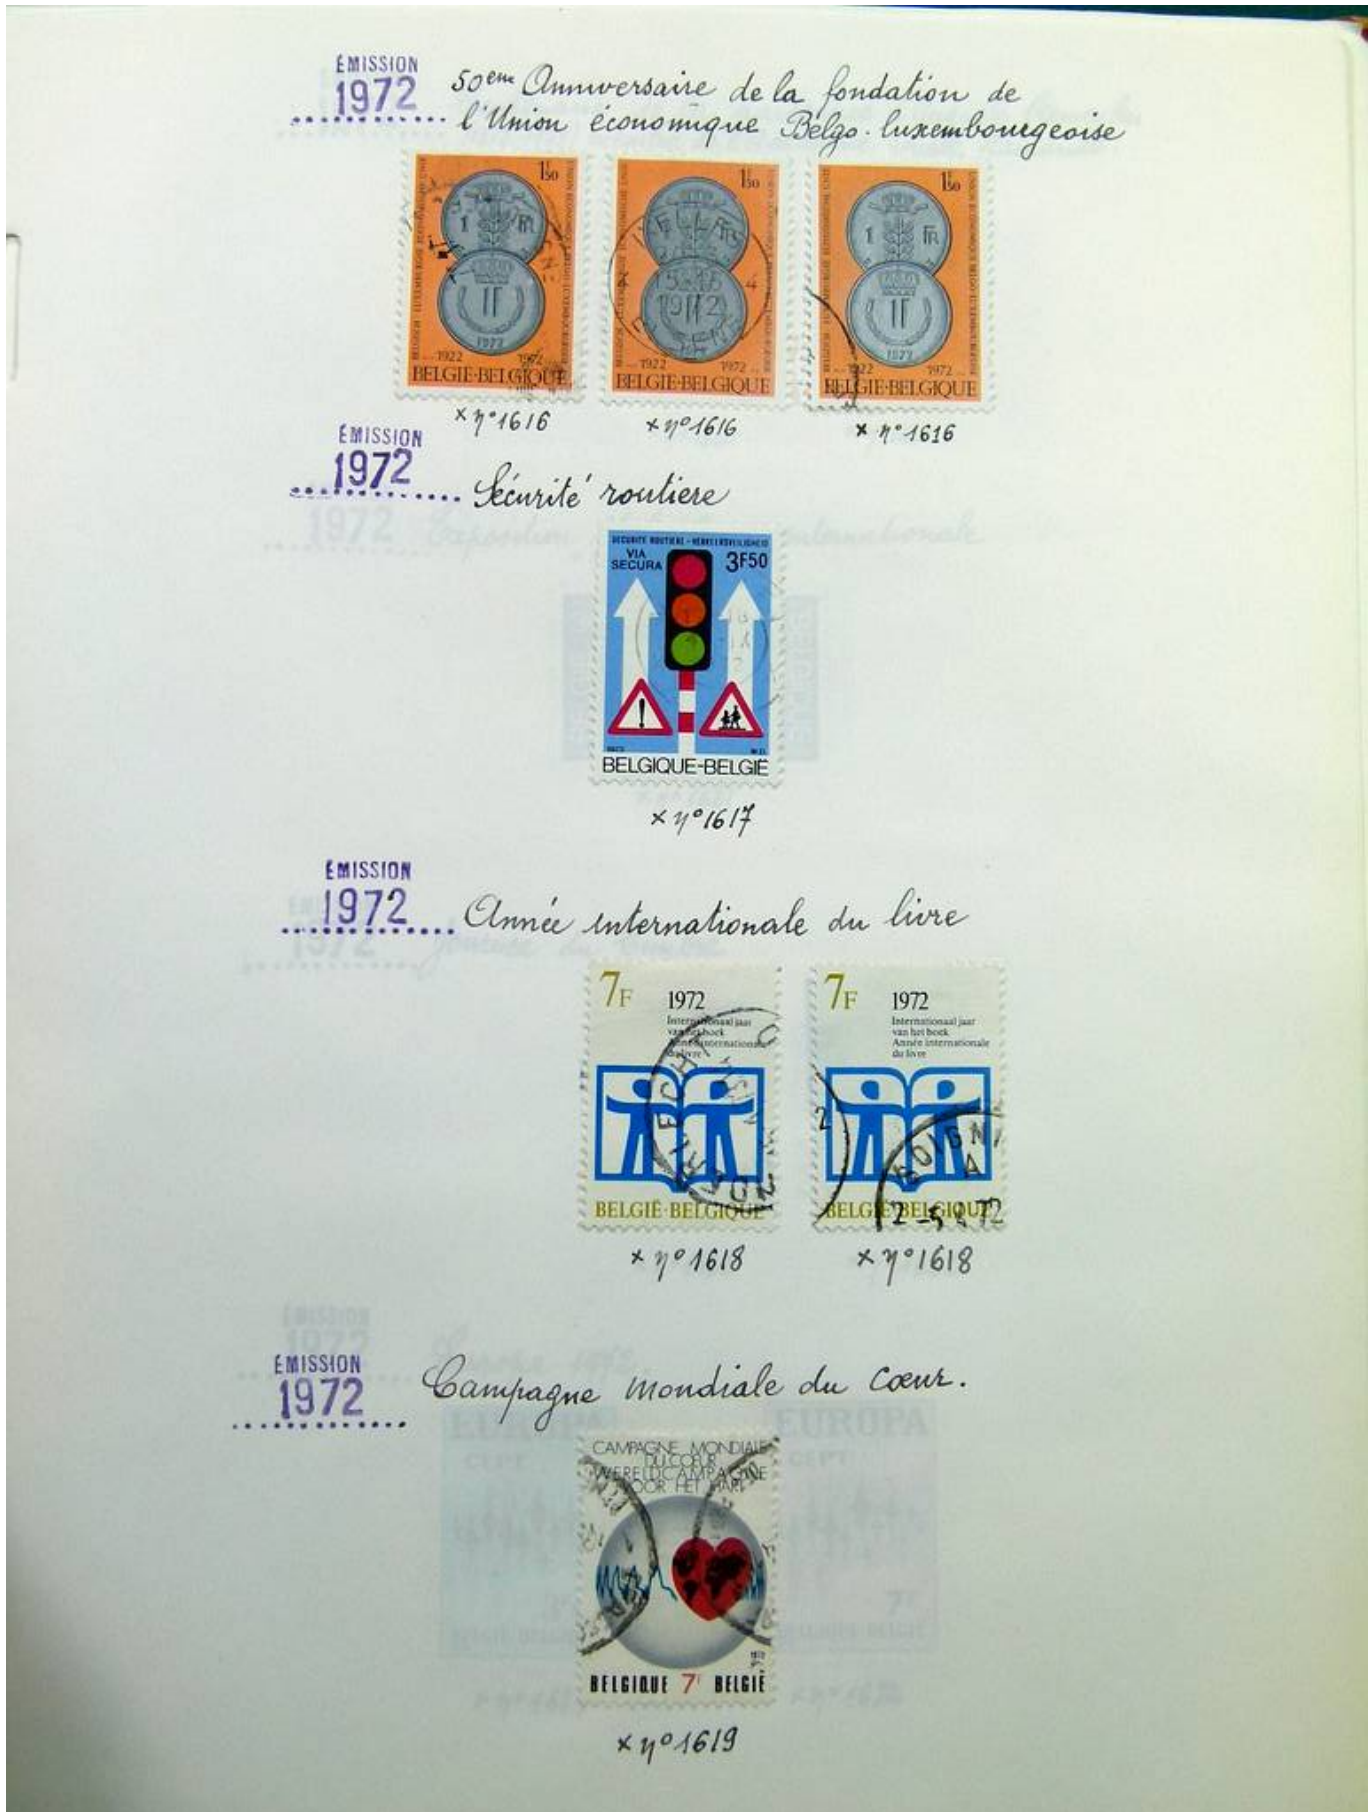 ÉMISSION
1972
50em Anniversaire de la fondation de
l'Union économique Belgo-luxembourgeoise
1F50
1 FR
1F
1972
1922 1972
BELGIE-BELGIQUE
1F50
1972
1922 1972
BELGIE-BELGIQUE
1F50
1 FR
1F
1972
1922 1972
BELGIE-BELGIQUE
x n° 1616
x n° 1616
x n° 1616
ÉMISSION
1972
Sécurité routiere
SECURITE ROUTIERE - VERKEERSVEILIGHEID
VIA
SECURA
3F50
BELGIQUE-BELGIË
x n° 1617
ÉMISSION
1972
Année internationale du livre
7F
1972
Internationaal jaar
van het boek
Année internationale
du livre
BELGIË-BELGIQUE
7F
1972
Internationaal jaar
van het boek
Année internationale
du livre
BELGIË-BELGIQUE
2-5 8 72
x n° 1618
x n° 1618
ÉMISSION
1972
Campagne mondiale du cœur.
CAMPAGNE MONDIALE
DU COEUR
WERELDCAMPAGNE
VOOR HET HART
BELGIQUE 7F BELGIË
x n° 1619